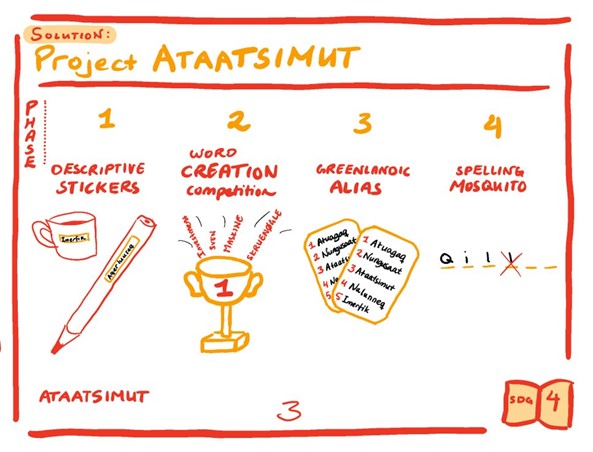 SOLUTION:
Project ATAATSIMUT
PHASE
1
2
3
4
DESCRIPTIVE
STICKERS
WORD
CREATION
competition
GREENLANDIC
ALIAS
SPELLING
MOSQUITO
Imertik
MASKINE
SKRUENØGLE
1
1 Atuagaq
2 Nungusaat
3 Ataats
4
5
1 Atuagaq
2 Nungusaat
3 Ataatsimut
4
5 Imertik
Q i l
ATAATSIMUT
3
SDG 4